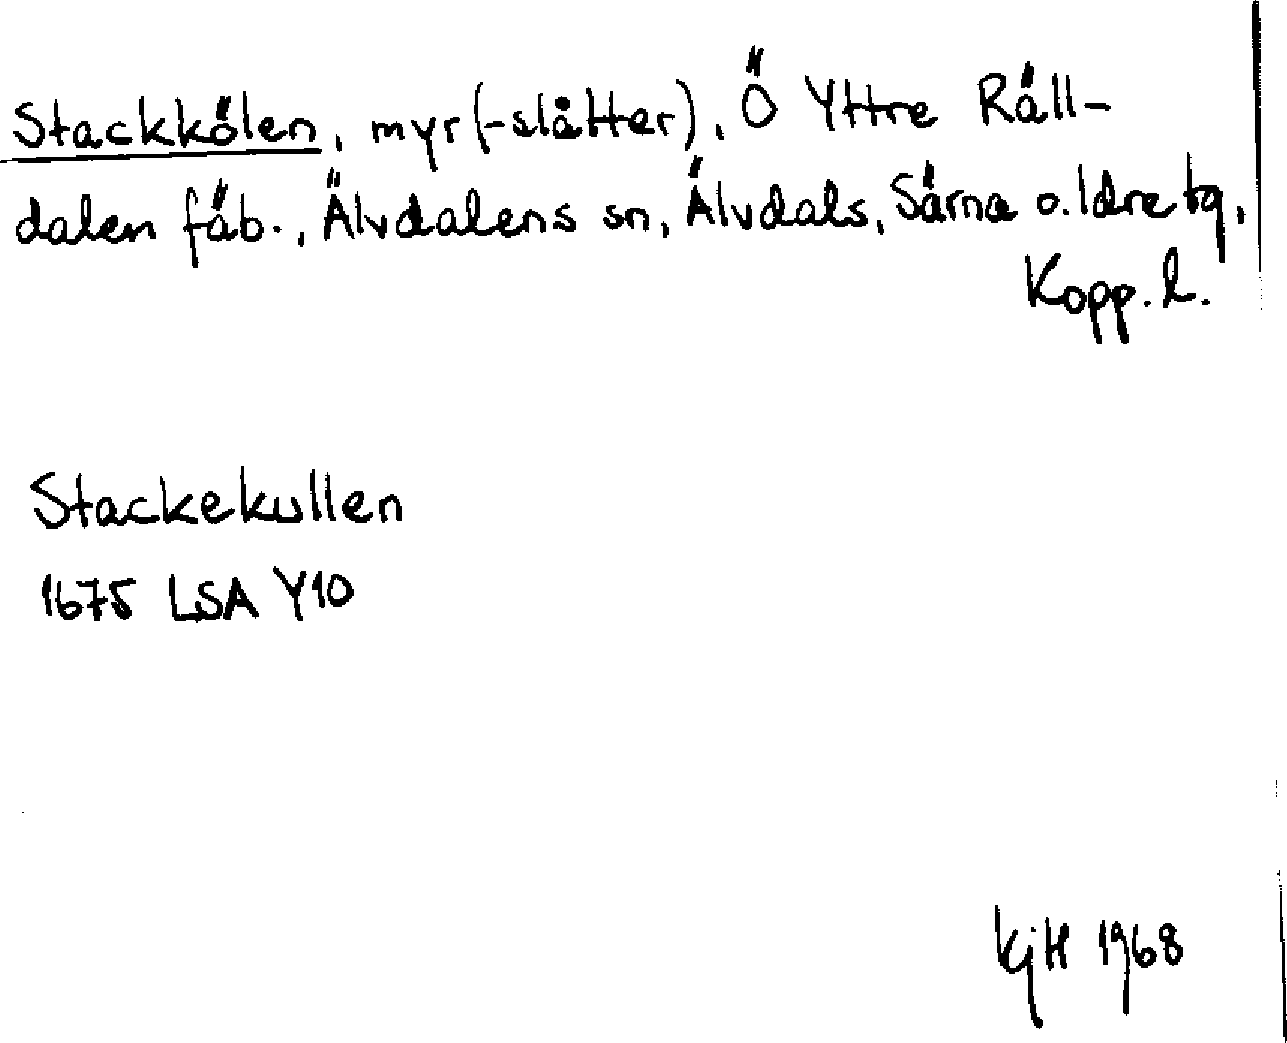 Stackkölen, myr(-slåtter), Ö Yttre Räll-
dalen fäb., Älvdalens sn, Älvdals, Särna o. Idre tg,
Kopp. l.
Stackekullen
1675 LSA Y10
KjH 1968